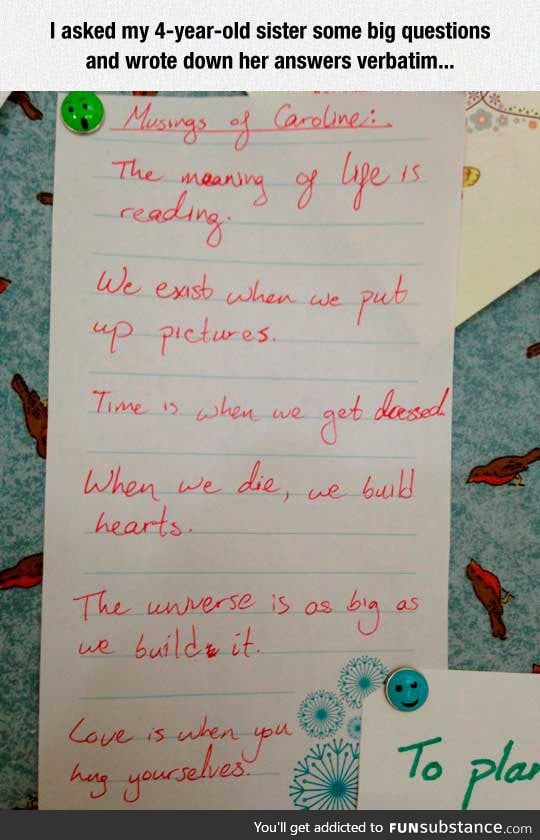 I asked my 4-year-old sister some big questions
and wrote down her answers verbatim...
Musings of Caroline:
The meaning of life is
reading.
We exist when we put
up pictures.
Time is when we get dressed.
When we die, we build
hearts.
The universe is as big as
we build it.
Love is when you
hug yourselves.
To plan
You'll get addicted to FUNsubstance.com